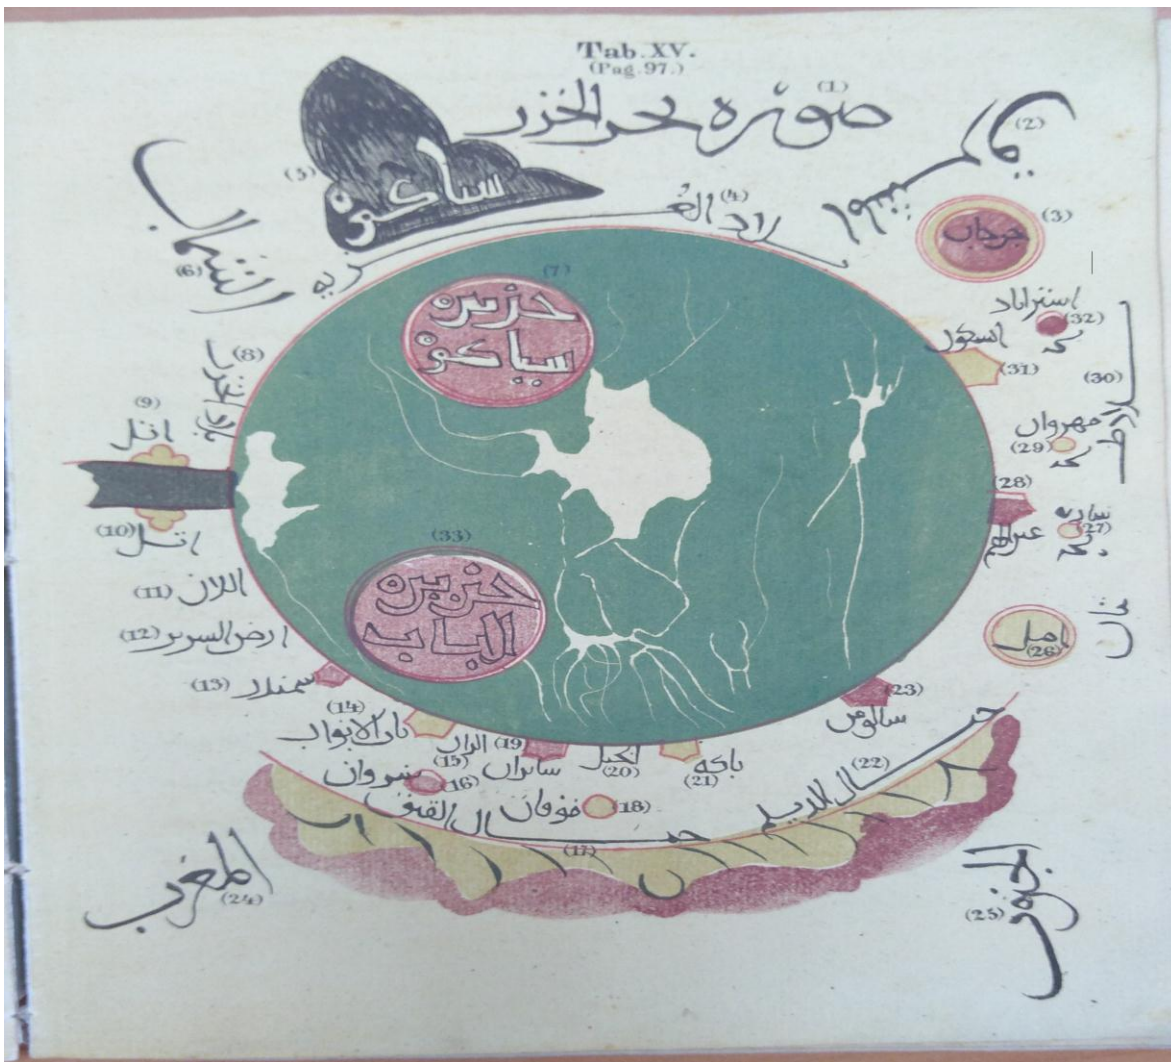 Tab. XV.
(Pag. 97.)
(1) صورة بحر الخزر
(2)
(3) جرجان
(4) بلاد الغزيه
(5) سياكوه
(6) الشمال
(7) جزيره
سياكوه
(8) بلاد الخزر
(9) اتل
(10) اتل
(11) اللان
(12) ارض السرير
(13) سمندر
(14) باب الابواب
(15) الران
(16) شروان
(17) جبال القبق
(18) موقان
(19)
(20) الجيل
(21)
(22) جبال الديلم
(23) سالوس
(24) المغرب
(25) الجنوب
(26) امل
(27)
(28) عين الهم
(29) مهروان
(30)
(31) ابسكون
(32) استراباد
(33) جزيره
الباب